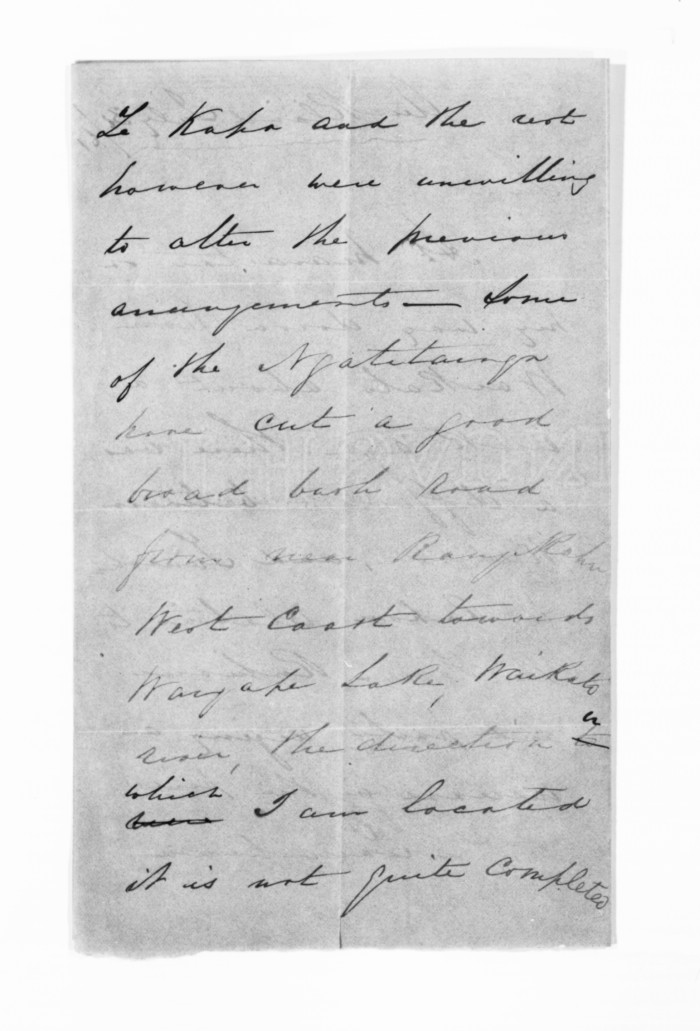 Te Kaha and the rest
however were unwilling
to alter the previous
arrangements — Some
of the Ngatitainga
have cut a good
broad bush road
from near,
West Coast towards
Wangape Lake, Waikato
river, the direction in
which
I am located
it is not quite completed